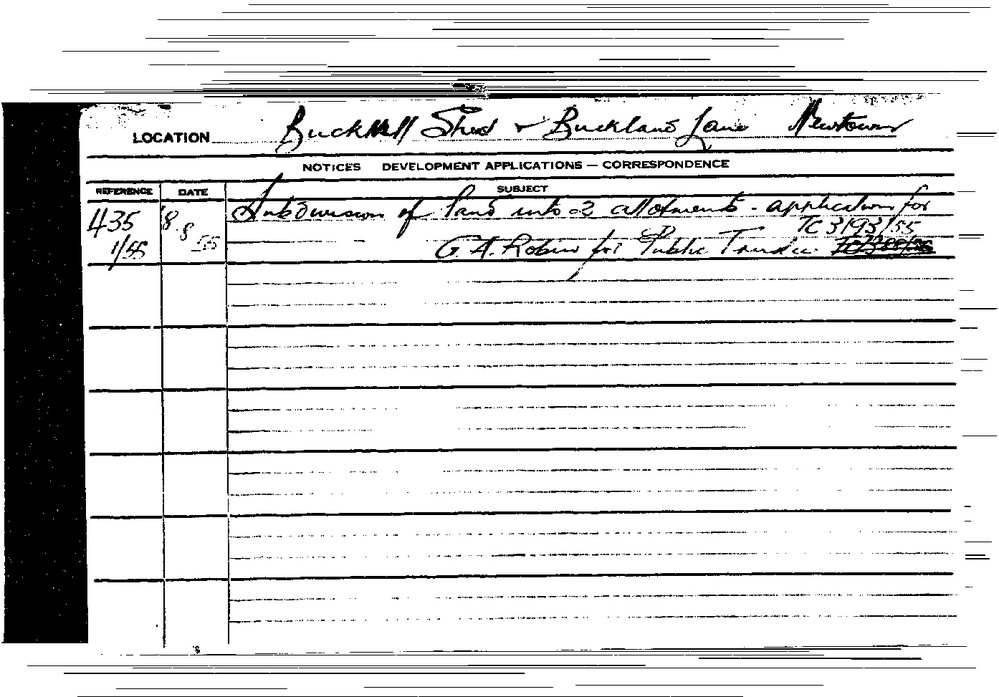 LOCATION Bucknell Street & Buckland Lane Newtown
NOTICES DEVELOPMENT APPLICATIONS — CORRESPONDENCE
REFERENCE DATE SUBJECT
435 8. Subdivision of land into 2 allotments - application for
8 TC 3193/55
1/55 55 G. A. Robin for Public Trustee.